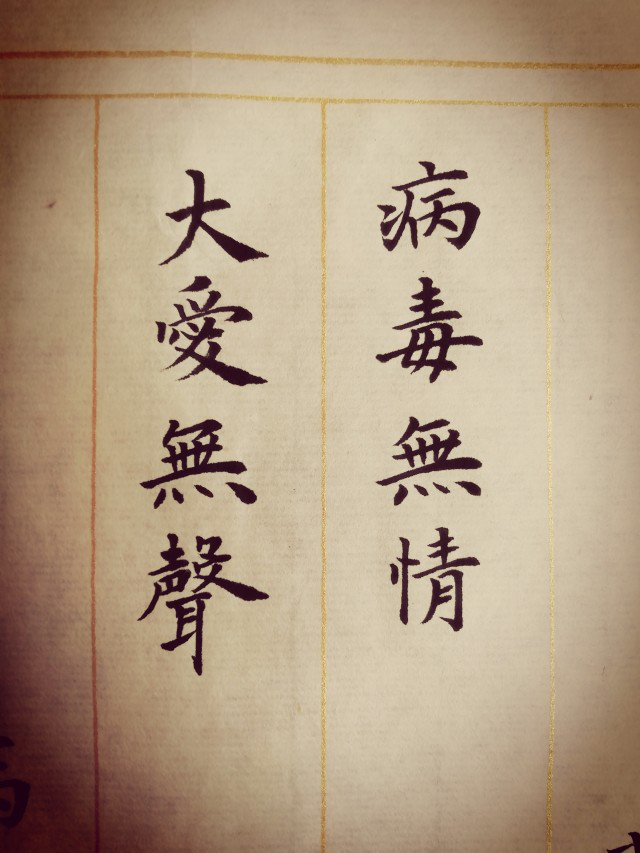 病毒無情
大愛無聲